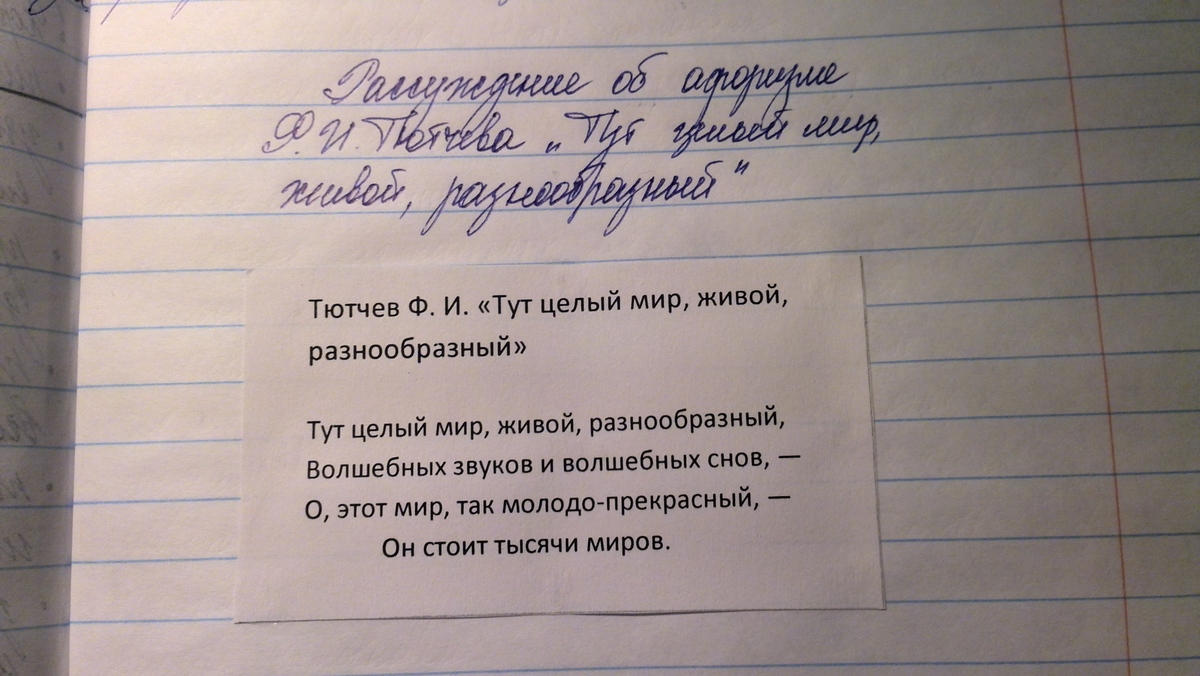 Рассуждение об афоризме
Ф.И. Тютчева „Тут целый мир,
живой, разнообразный"
Тютчев Ф. И. «Тут целый мир, живой,
разнообразный»
Тут целый мир, живой, разнообразный,
Волшебных звуков и волшебных снов, —
О, этот мир, так молодо-прекрасный, —
Он стоит тысячи миров.